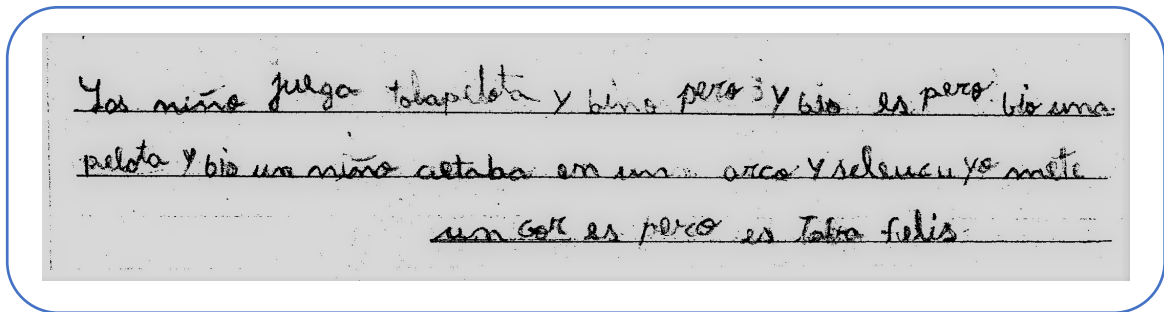 Los niño juega tolapelota y bino pero y bio es pero bio una
pelota y bio un niño cetaba en un arco y seleucu yo mete
un gor es pero es Taba felis